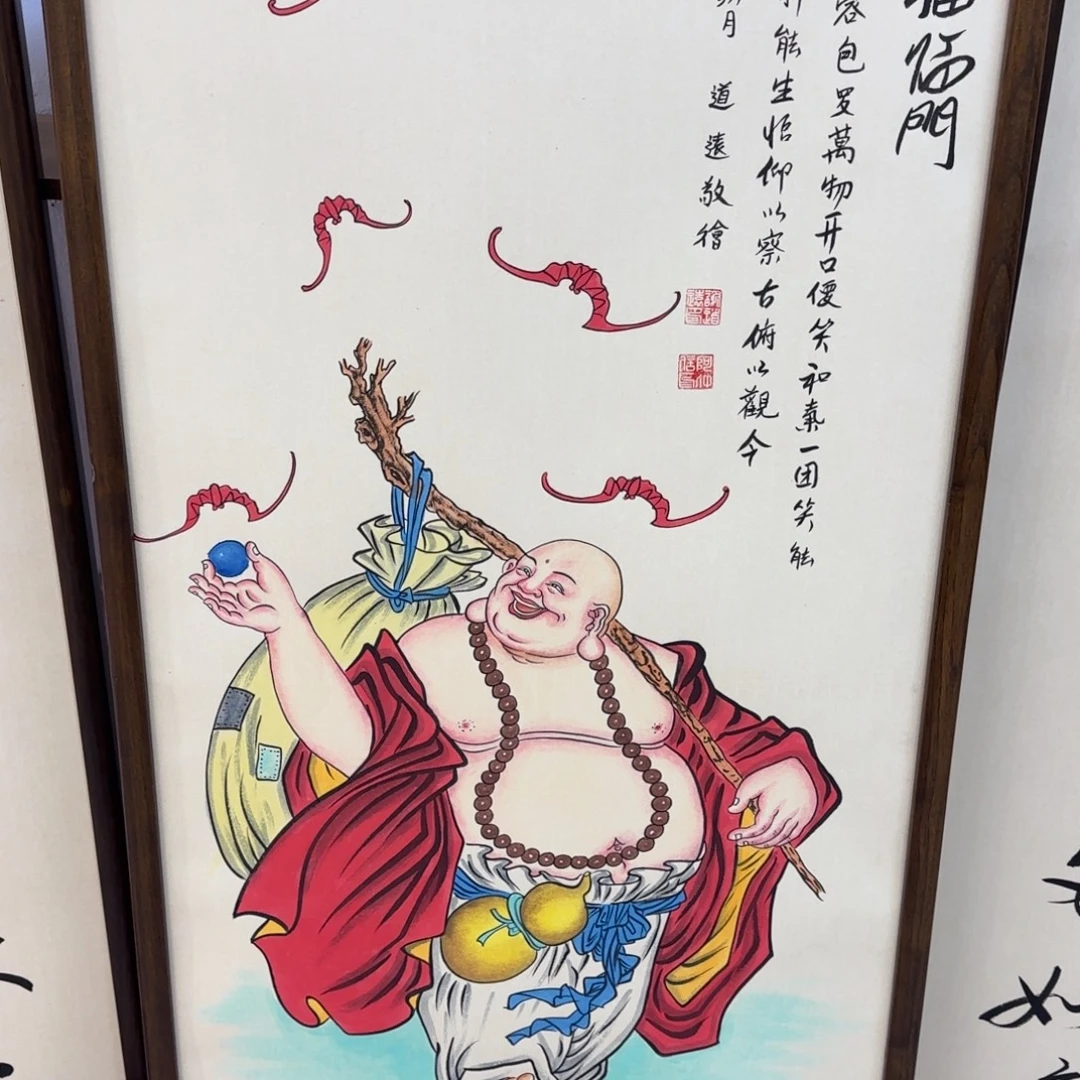 福臨門
容包罗萬物开口便笑和氣一团笑能
能生悟仰以察古俯以觀今
月 道遠敬繪
如